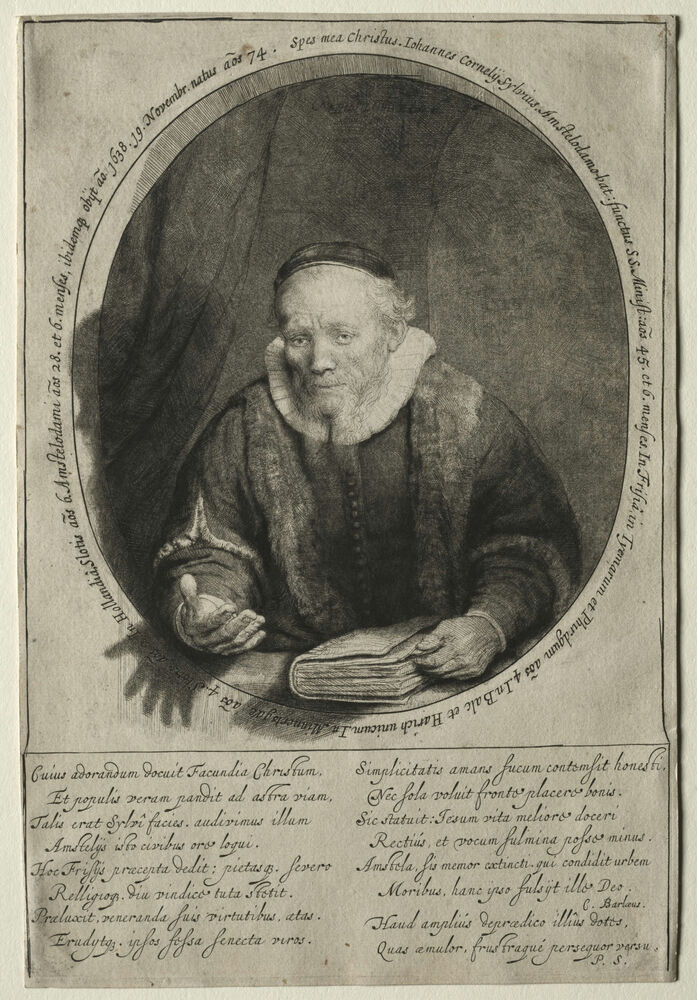 Spes mea Christus. Iohannes Cornelij Sylvius, Amstelodamo-bat: functus S.S. Minist: aôs 45. et 6. menses. In Frisiâ in Tyemarum et Phirdgum aôs 4. In Balc et Harich unicum. In Minnertsgae aôs 4. In Hollandia, Slotis aôs 6. Amstelodami aôs 28. et 6. menses, ibidemq obijt aô. 1638. 19. Novembr. natus aôs 74.
Cuius adorandum docuit Facundia Christum,
Et populis veram pandit ad astra viam,
Talis erat Sylvî facies. audivimus illum
Amstelijs isto civibus ore loqui.
Hoc Frisijs præcepta dedit; pietasq. severo
Relligioq. diu vindice tuta stetit.
Præluxit, veneranda suis virtutibus, ætas.
Erudytq. ipsos fessa senecta viros.
Simplicitatis amans fucum contemsit honesti,
Nec sola voluit fronte placere bonis.
Sic statuit: Iesum vita meliore doceri
Rectiùs, et vocum fulmina posse minus.
Amstela, sis memor extincti, qui condidit urbem
Moribus, hanc ipso fulsijt ille Deo.
C. Barlæus.
Haud ampliùs deprædico illius dotes,
Quas æmulor, frustraque persequor versu.
P. S.